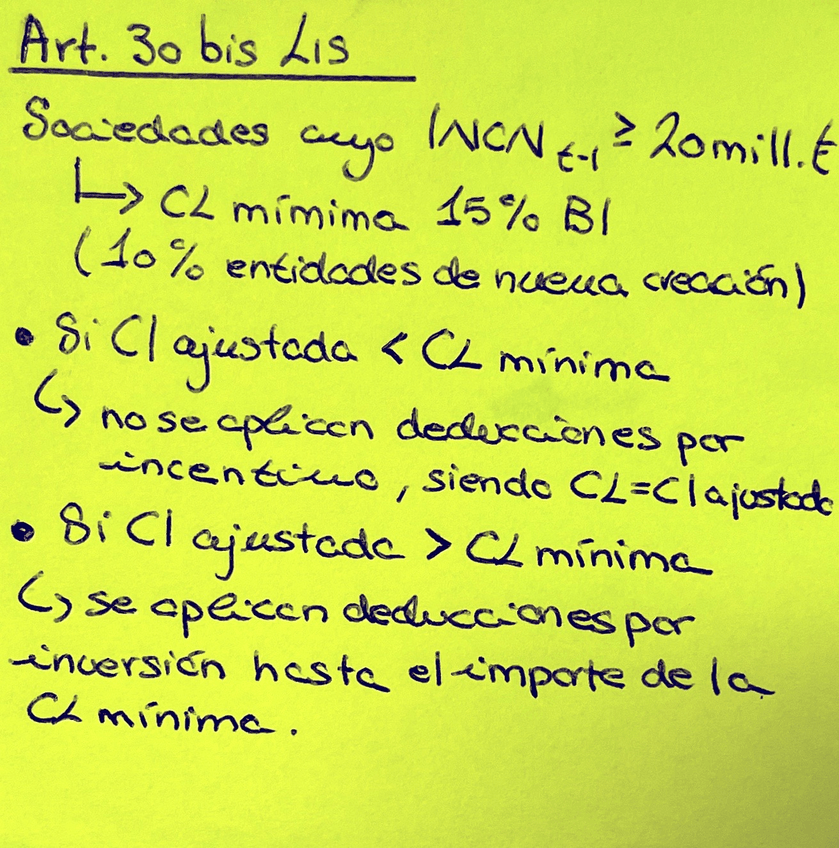 Art. 30 bis LIS
Sociedades cuyo INCN t-1 ≥ 20 mill. €
↳ CL mímima 15% BI
(10% entidades de nueva creación)
• Si CI ajustada < CL mínima
↳ no se aplican deducciones por
incentivo, siendo CL=CI ajustada
• Si CI ajustada > CL mínima
↳ se aplican deducciones por
inversión hasta el importe de la
CL mínima.